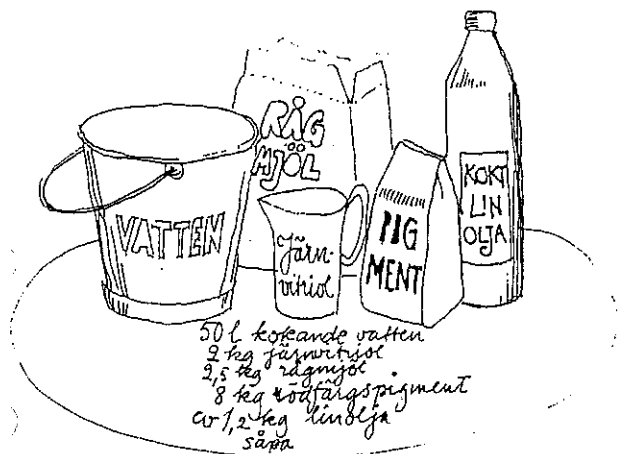 VATTEN
RÅG
MJÖL
Järn-
vitriol
PIG
MENT
KOKT
LIN
OLJA
50 l kokande vatten
2 kg järnvitriol
2,5 kg rågmjöl
8 kg rödfärgspigment
ev 1,2 kg linolja
såpa